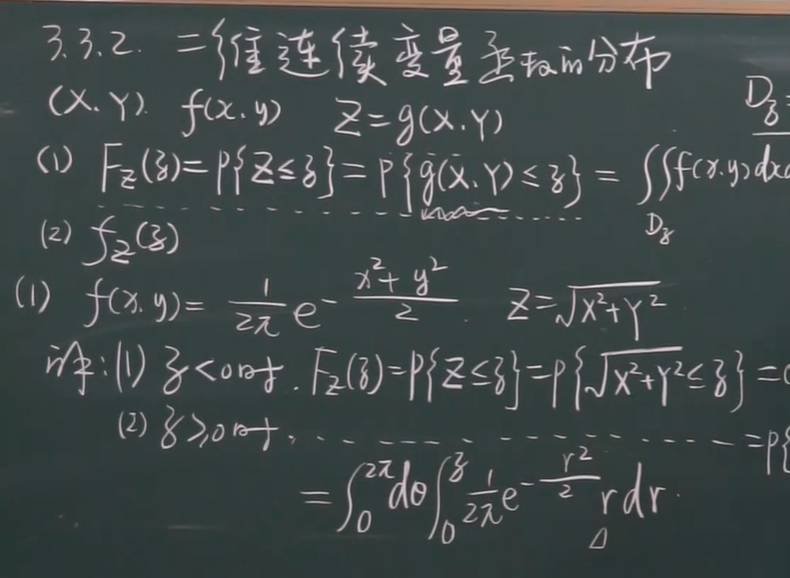 3.3.2. 二维连续变量函数的分布
(X.Y) f(x.y) Z=g(X.Y) D_z=
(1) F_Z(z)=P{Z≤z}=P{g(X.Y)≤z}=∬f(x.y)dxd
D_z
(2) f_Z(z)
(1) f(x.y)= 1/2π e^{-(x²+y²)/2} Z=√(X²+Y²)
解:(1) z<0时. F_Z(z)=P{Z≤z}=P{√(X²+Y²)≤z}=0
(2) z≥0时. - - - - - - - =P{
=∫_0^{2π}dθ∫_0^z 1/2π e^{-r²/2} rdr.